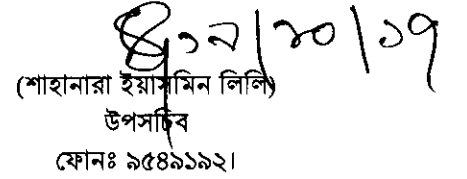 ১৯/১০/১৭
(শাহানারা ইয়াসমিন লিলি)
উপসচিব
ফোনঃ ৯৫৪৯১৯২।